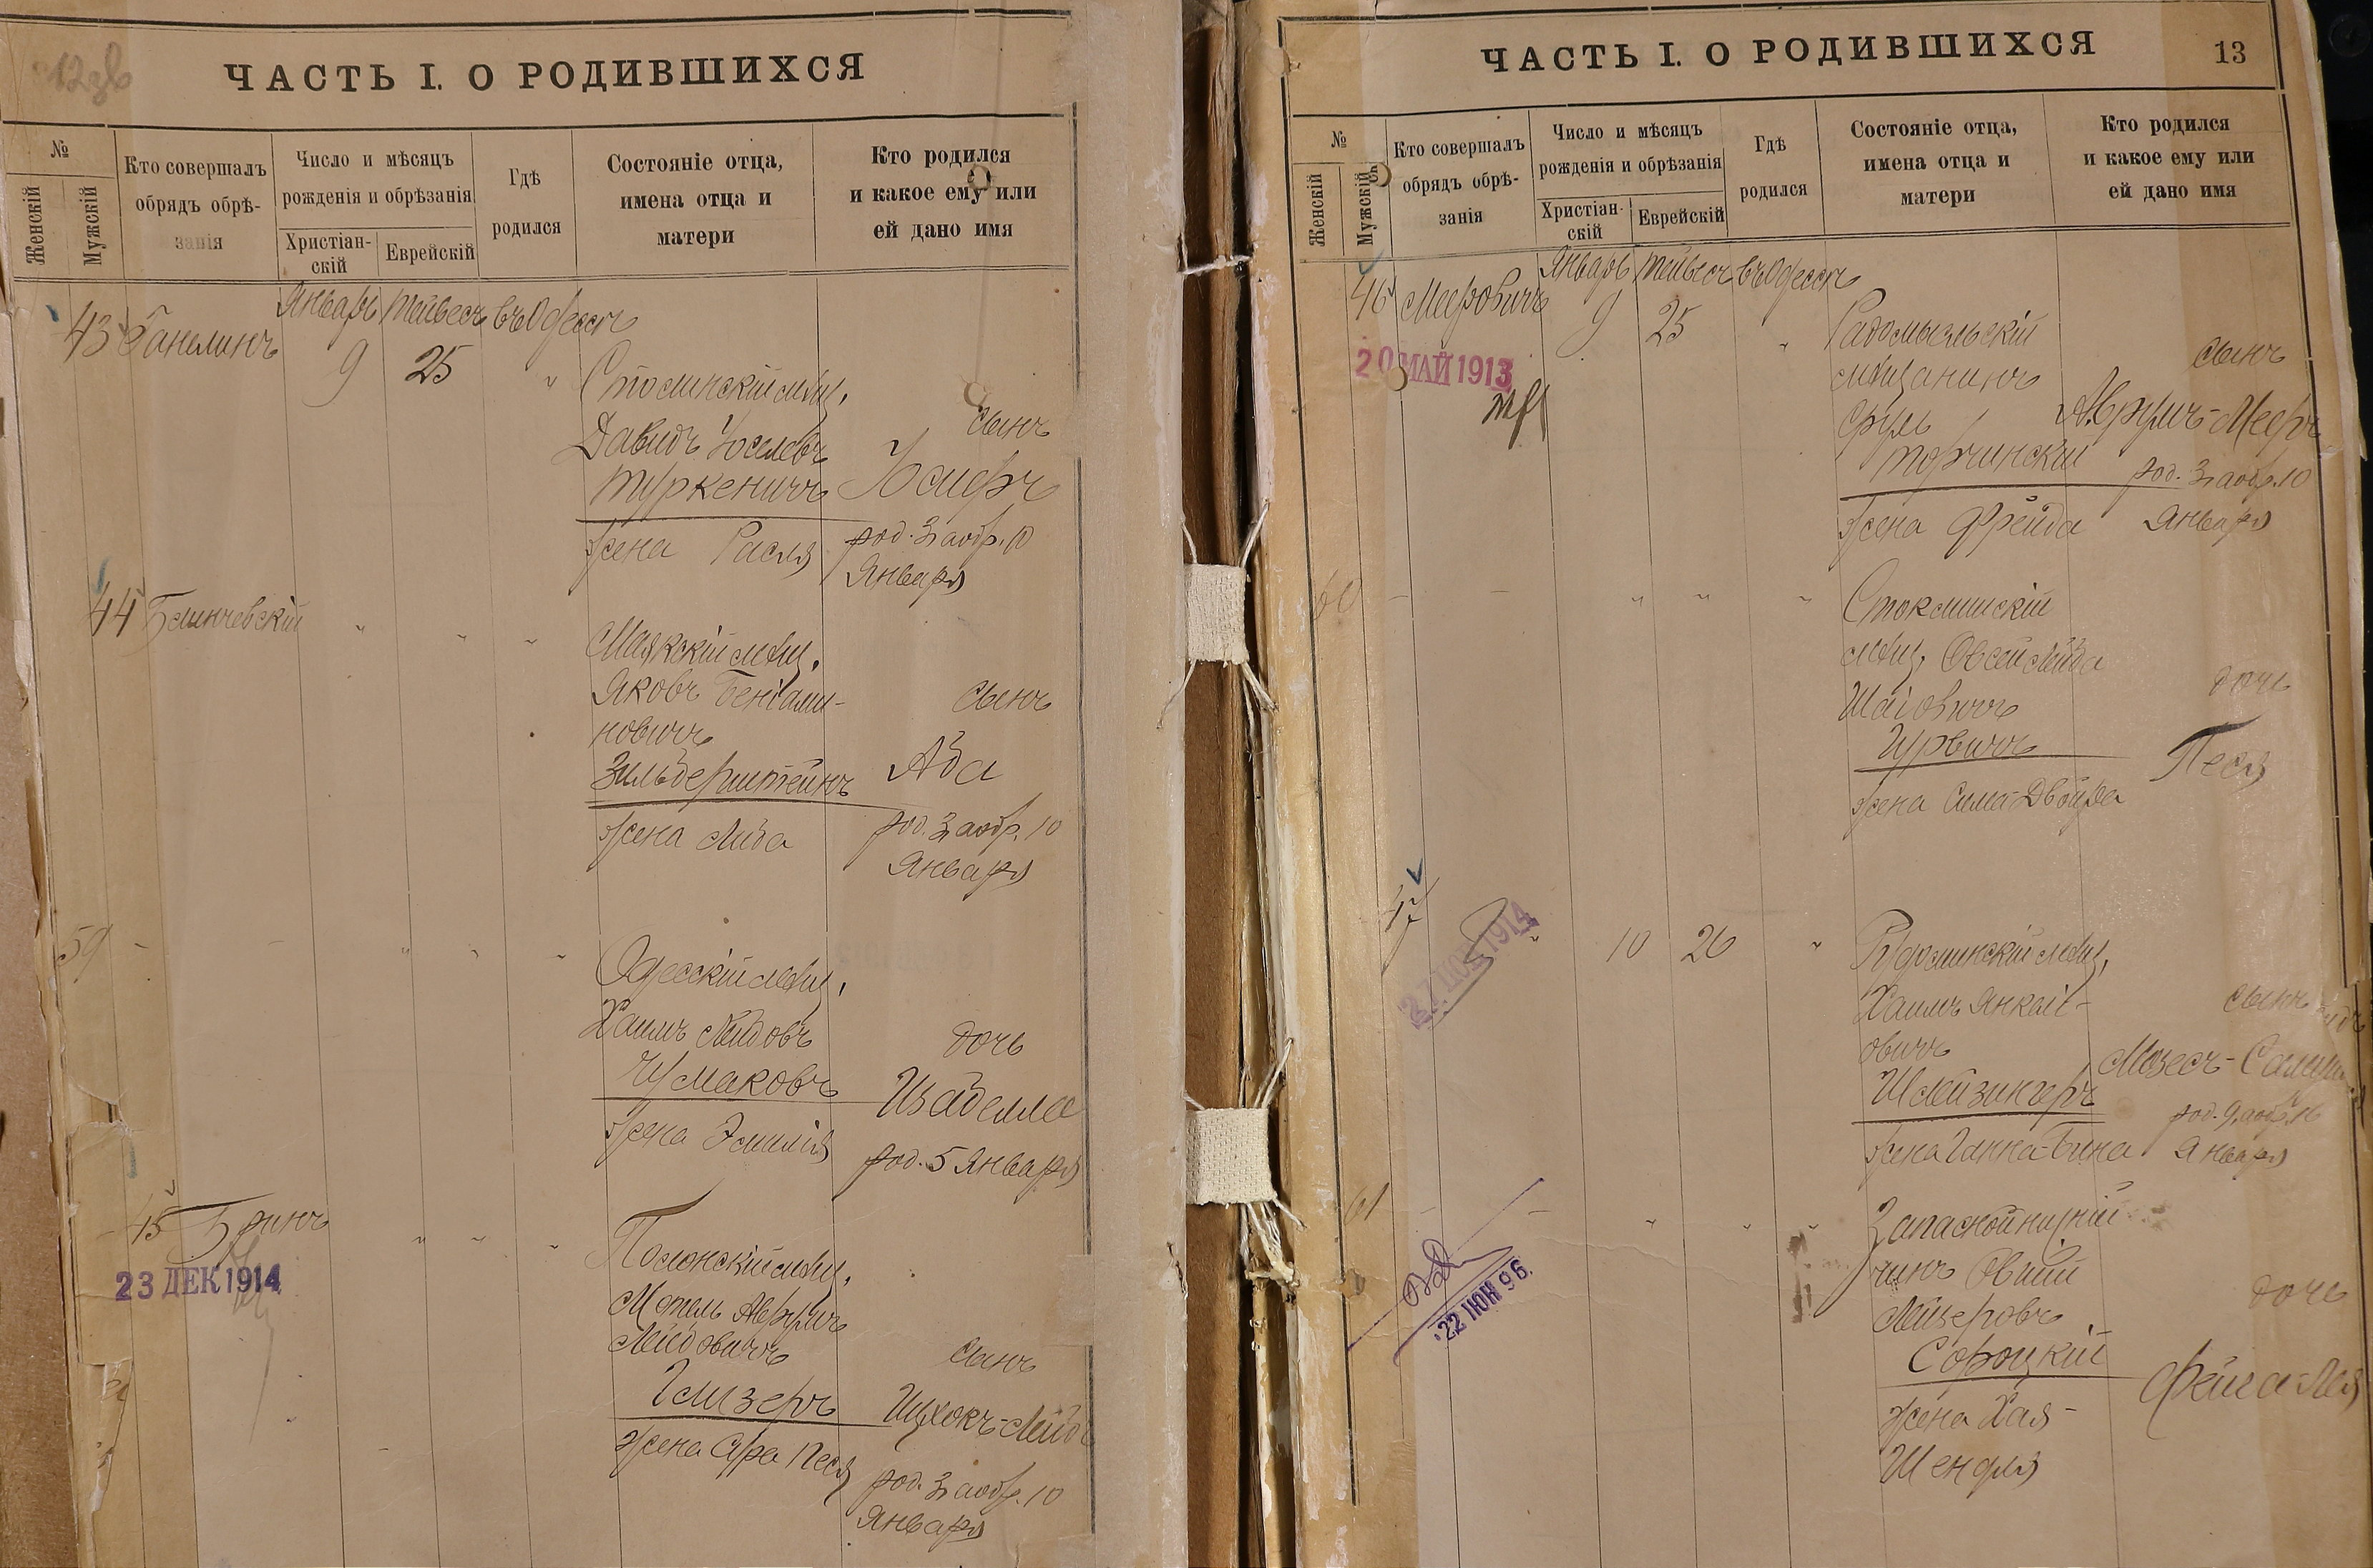 ЧАСТЬ I. О РОДИВШИХСЯ
№
Женскій
Мужскій
Кто совершалъ
обрядъ обрѣ-
занія
Число и мѣсяцъ
рожденія и обрѣзанія
Христіан-
скій
Еврейскій
Гдѣ
родился
Состояніе отца,
имена отца и
матери
Кто родился
и какое ему или
ей дано имя
Январь Тейвесъ въ Одессѣ
43 Ганелинъ
9 25 "
Столинскій мѣщ.
Давидъ Іоселевъ
Туркеничъ
жена Расля
сынъ
Іосифъ
род. 3, а обр. 10
Января
44 Блинчевскій " " "
Маякскій мѣщ.
Яковъ Бенiами-
новичъ
Зильберштейнъ
жена Либа
сынъ
Аба
род. 3, а обр. 10
Января
59 - - " " "
Одесскій мѣщ.
Хаимъ Лейбовъ
Чумаковъ
жена Эмилія
дочь
Изабелла
род. 5 Января
- 45 Бринъ " " "
23 ДЕК 1914
Полонскій мѣщ.
Мотель Аврумъ
Лейбовичъ
Глизеръ
жена Сура Песя
сынъ
Ицхокъ-Лейбъ
род. 3, а обр. 10
Января
ЧАСТЬ I. О РОДИВШИХСЯ
13
№
Женскій
Мужскій
Кто совершалъ
обрядъ обрѣ-
занія
Число и мѣсяцъ
рожденія и обрѣзанія
Христіан-
скій
Еврейскій
Гдѣ
родился
Состояніе отца,
имена отца и
матери
Кто родился
и какое ему или
ей дано имя
Январь Тейвесъ въ Одессѣ
46 Мееровичъ
9 25 "
20 МАЙ 1913
Радомысльскій
мѣщанинъ
Сруль
Торчинскій
жена Фрейда
сынъ
Аврумъ-Мееръ
род. 3, а обр. 10
Января
60 - - " " "
мѣщ. Овсей Лейба
Шаіовичъ
Гурвичъ
жена Сима-Двойра
дочь
Песя
47 " 10 26 "
27 1914
мѣщ.
Хаимъ Янкеле-
овичъ
Шлейзингеръ
жена Ганна-Бина
сынъ
Мозесъ-
род. 9, а обр. 16
Января
61 - - " " "
22 ІЮН 96.
Запасной нижній
чинъ Овшій
Лейзеровъ
Сороцкій
жена Хая-
Шендля
дочь
Фейга-Лея